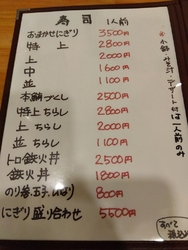 寿司 1人前
おまかせにぎり 3500円
特上 2800円
上 2000円
中 1600円
並 1100円
本鮪づくし 2500円
特上ちらし 2800円
上ちらし 2000円
並ちらし 1100円
トロ鉄火丼 2500円
鉄火丼 1800円
のり巻、玉子、いなり 800円
にぎり盛り合わせ 5500円
※小鉢・みそ汁・デザート付は一人前のみ
すべて
税込